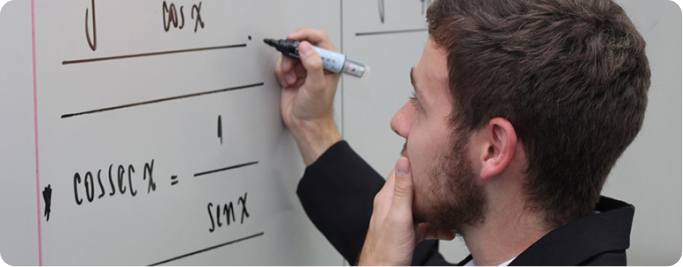 cos x
1
cossec x =
sen x